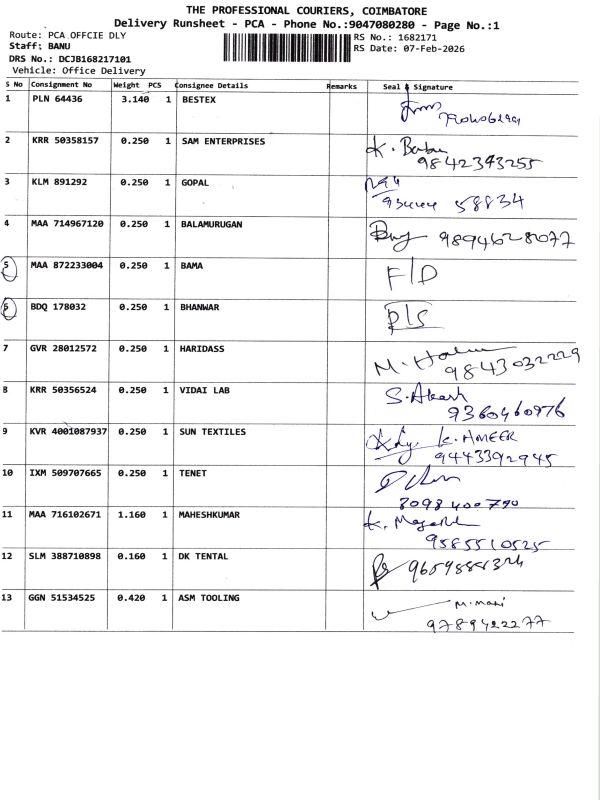 THE PROFESSIONAL COURIERS, COIMBATORE
Delivery Runsheet - PCA - Phone No.:9047080280 - Page No.:1
Route: PCA OFFCIE DLY
RS No.: 1682171
Staff: BANU
RS Date: 07-Feb-2026
DRS No.: DCJB168217101
Vehicle: Office Delivery
S No Consignment No Weight PCS Consignee Details Remarks Seal & Signature
1 PLN 64436 3.140 1 BESTEX
2 KRR 50358157 0.250 1 SAM ENTERPRISES K. Babu
9842393255
3 KLM 891292 0.250 1 GOPAL
58834
4 MAA 714967120 0.250 1 BALAMURUGAN 9894628077
5 MAA 872233004 0.250 1 BAMA F/D
6 BDQ 178032 0.250 1 BHANWAR D/S
7 GVR 28012572 0.250 1 HARIDASS M.
9843032229
8 KRR 50356524 0.250 1 VIDAI LAB S. Akash
9360460976
9 KVR 4001087937 0.250 1 SUN TEXTILES K. AMEER
9443392945
10 IXM 509707665 0.250 1 TENET
8098400790
11 MAA 716102671 1.160 1 MAHESHKUMAR K.
9585510525
12 SLM 388710898 0.160 1 DK TENTAL
13 GGN 51534525 0.420 1 ASM TOOLING M. Mani
9789422277